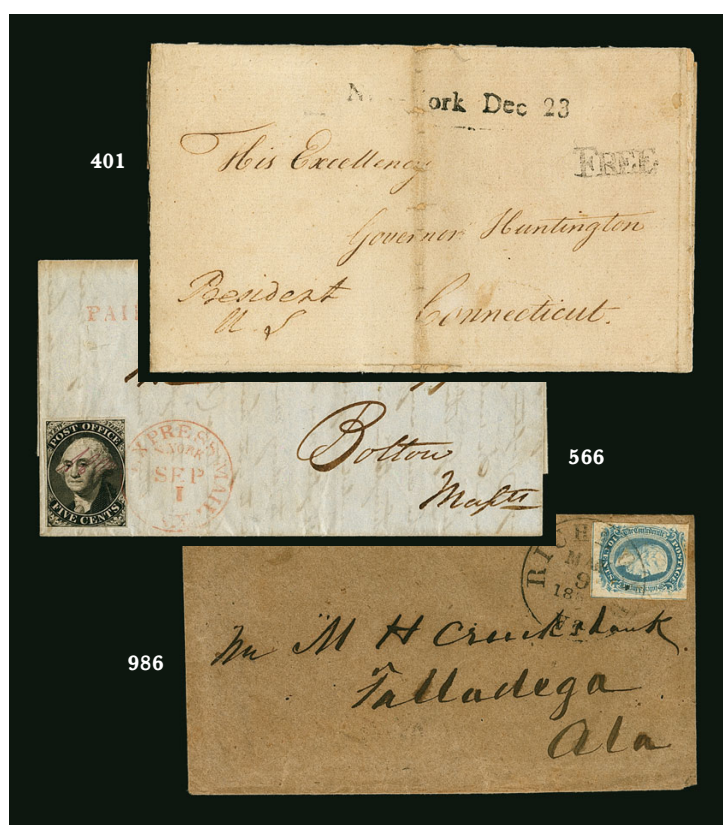 401
ork Dec 23
FREE
His Excellency
Governor Huntington
President
U S
Connecticut.
PAI
POST OFFICE
FIVE CENTS
EXPRESS MAIL
N. YORK
SEP
1
N.Y.
Boston
Massts
566
RICH
MA
9
186
Va
Mr M H Cruikshank
Talladega
Ala
986